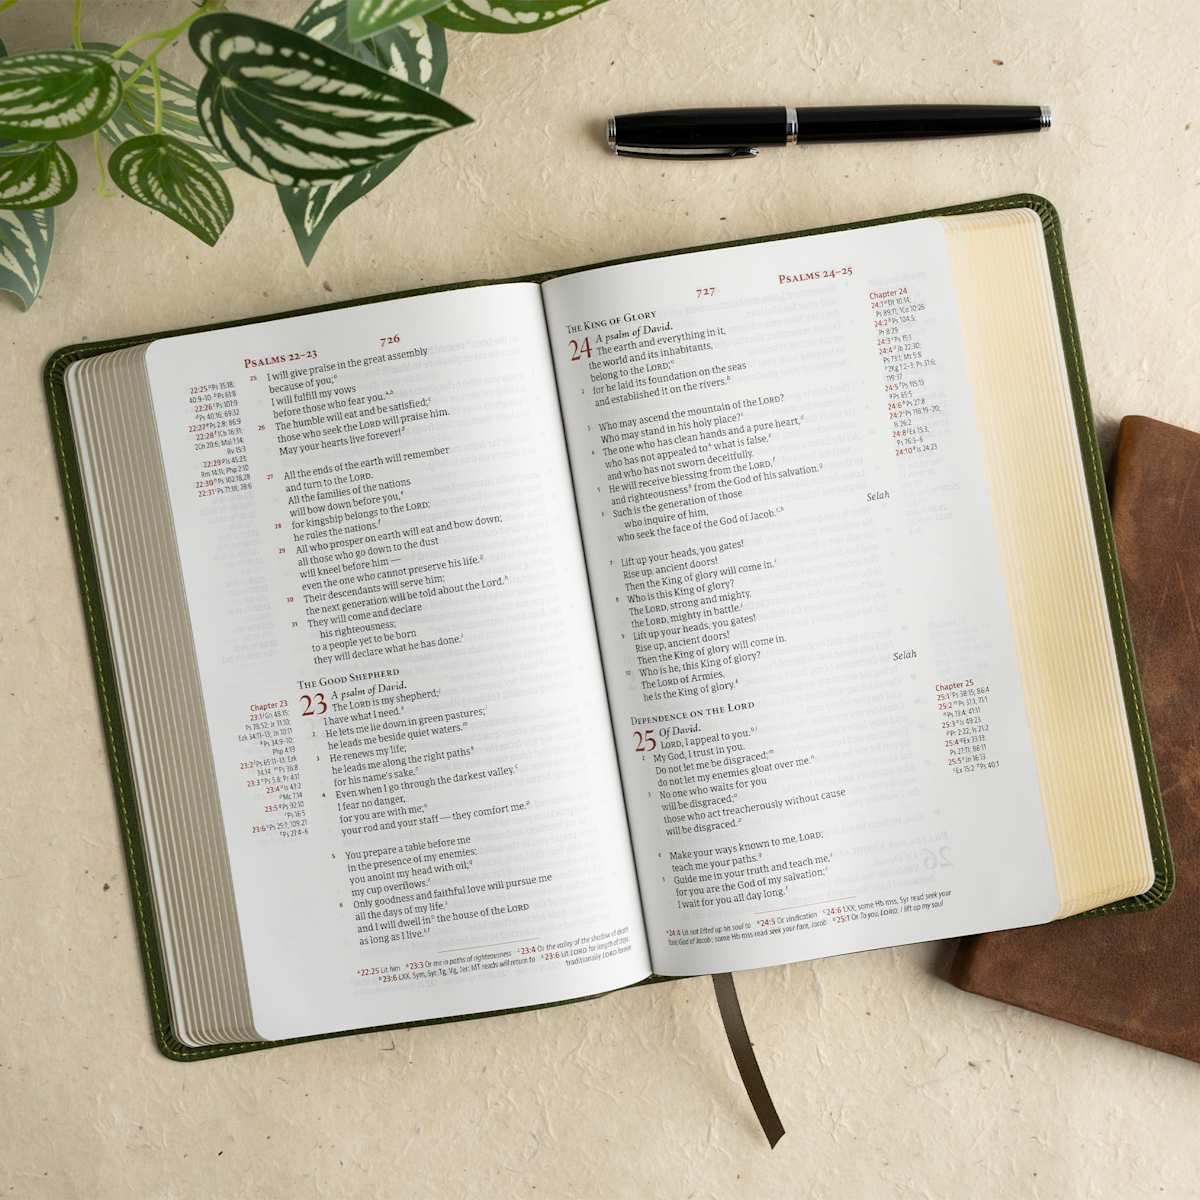 Psalms 22–23
726
25 I will give praise in the great assembly
because of you;
I will fulfill my vows
before those who fear you.
26 The humble will eat and be satisfied;
those who seek the Lord will praise him.
May your hearts live forever!
27 All the ends of the earth will remember
and turn to the Lord.
All the families of the nations
will bow down before you,
28 for kingship belongs to the Lord;
he rules the nations.
29 All who prosper on earth will eat and bow down;
all those who go down to the dust
will kneel before him —
even the one who cannot preserve his life.
30 Their descendants will serve him;
the next generation will be told about the Lord.
31 They will come and declare
his righteousness;
to a people yet to be born
they will declare what he has done.
The Good Shepherd
23 A psalm of David.
The Lord is my shepherd;
I have what I need.
2 He lets me lie down in green pastures;
he leads me beside quiet waters.
3 He renews my life;
he leads me along the right paths
for his name's sake.
4 Even when I go through the darkest valley,
I fear no danger,
for you are with me;
your rod and your staff — they comfort me.
5 You prepare a table before me
in the presence of my enemies;
you anoint my head with oil;
my cup overflows.
6 Only goodness and faithful love will pursue me
all the days of my life,
and I will dwell in the house of the Lord
as long as I live.
22:25 Lit him 23:3 Or me in paths of righteousness 23:4 Or the valley of the shadow of death
23:6 LXX, Sym, Syr, Tg, Vg, Jer; MT reads will return to 23:6 Lit Lord for length of days;
traditionally Lord forever
727
Psalms 24–25
The King of Glory
24 A psalm of David.
The earth and everything in it,
the world and its inhabitants,
belong to the Lord;
2 for he laid its foundation on the seas
and established it on the rivers.
3 Who may ascend the mountain of the Lord?
Who may stand in his holy place?
4 The one who has clean hands and a pure heart,
who has not appealed to what is false,
and who has not sworn deceitfully.
5 He will receive blessing from the Lord,
and righteousness from the God of his salvation.
6 Such is the generation of those
who inquire of him,
who seek the face of the God of Jacob.
Selah
7 Lift up your heads, you gates!
Rise up, ancient doors!
Then the King of glory will come in.
8 Who is this King of glory?
The Lord, strong and mighty,
the Lord, mighty in battle.
9 Lift up your heads, you gates!
Rise up, ancient doors!
Then the King of glory will come in.
10 Who is he, this King of glory?
The Lord of Armies,
he is the King of glory.
Selah
Dependence on the Lord
25 Of David.
Lord, I appeal to you.
2 My God, I trust in you.
Do not let me be disgraced;
do not let my enemies gloat over me.
3 No one who waits for you
will be disgraced;
those who act treacherously without cause
will be disgraced.
4 Make your ways known to me, Lord;
teach me your paths.
5 Guide me in your truth and teach me,
for you are the God of my salvation;
I wait for you all day long.
24:4 Lit not lifted up his soul to 24:5 Or vindication 24:6 LXX; some Hb mss, Syr read seek your
face, God of Jacob; some Hb mss read seek your face, Jacob 25:1 Or To you, Lord, I lift up my soul
Chapter 23
Chapter 24
Chapter 25